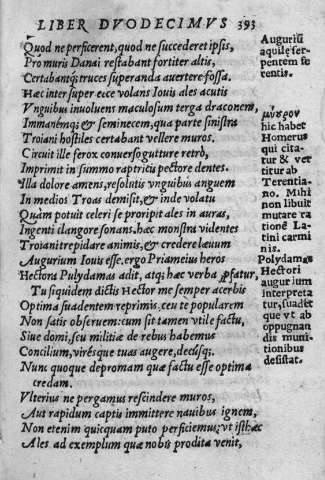 LIBER DVODECIMVS 393
Quod ne perficerent, quod ne succederet ipsis,
Pro muris Danai restabant fortiter altis,
Certabantq́; truces superanda auertere fossa.
Hæc inter super ecce volans Iouis ales acutis
Vnguibus inuoluens maculosum terga draconem,
Immanémq;, & seminecem, qua parte sinistra
Troiani hostiles certabant vellere muros.
Circuit ille ferox conuerso gutture retrò,
Imprimit in summo raptricis pectore dentes.
Illa dolore amens, resolutis vnguibus anguem
In medios Troas demisit, & inde volatu
Quàm potuit celeri se proripit ales in auras,
Ingenti clangore sonans. hæc monstra videntes
Troiani trepidare animis, & credere læuum
Augurium Iouis esse. ergo Priameius heros
Hectora Polydamas adit, atq; hæc verba profatur,
Tu siquidem dictis Hector me semper acerbis
Optima suadentem reprimis. ceu te popularem
Non satis obseruem: cum sit tamen vtile factu,
Siue domi, seu militiæ de rebus habemus
Concilium, virésque tuas augere, decúsq;.
Nunc quoque depromam quæ factu esse optima
credam.
Vlterius ne pergamus rescindere muros,
Aut rapidum captis immittere nauibus ignem,
Non etenim quicquam puto perficiemus, vt isthæc
Ales ad exemplum quæ nobis prodita venit,
Auguriũ
aquilæ ser-
pentem fe
rentis.
hic habet
Homerus
qui cita-
tur & ver
titur ab
Terentia-
no. Mihi
non libuit
mutare ra
tionẽ La-
tini carmi
nis.
Polydamas
Hectori
augurium
interpreta
tur, suadet
que vt ab
oppugnan
dis muni-
tionibus
desistat.